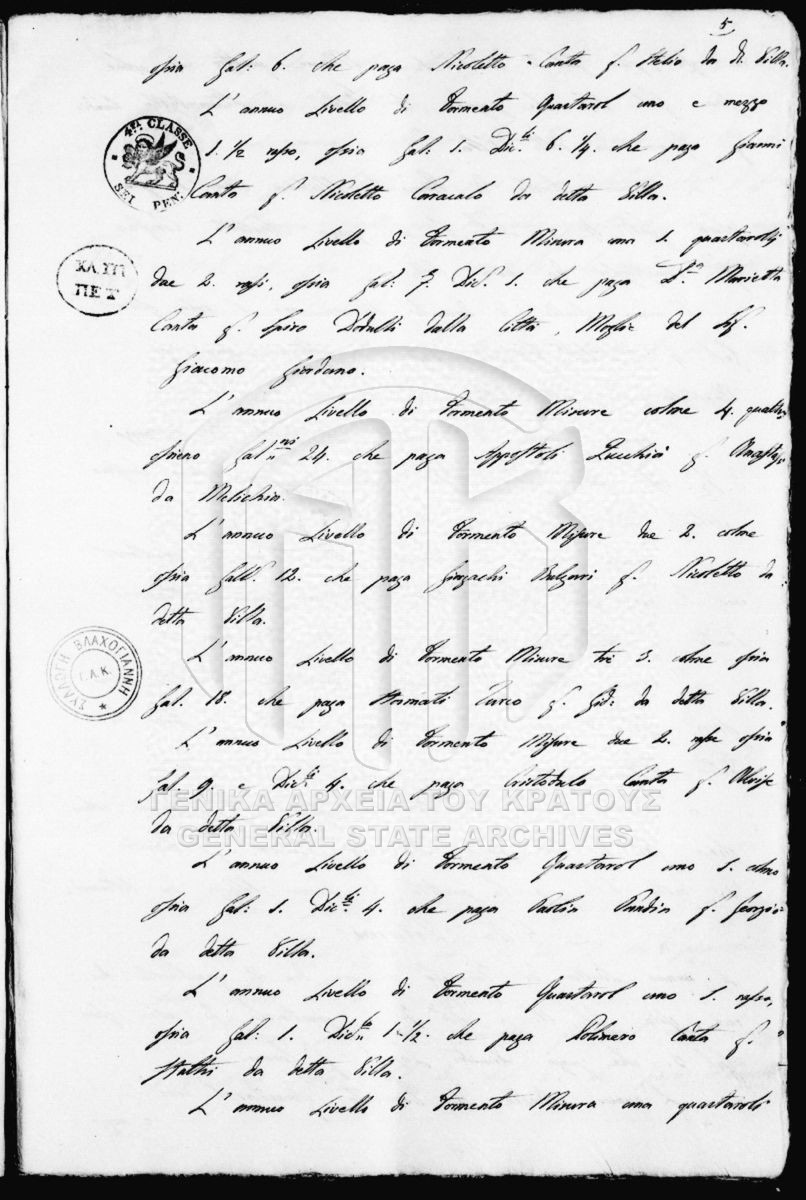 5
ossia Gal: 6. che paga Nicoletto Canta q. Stelio da d. Villa.
L'annuo Livello di Formento Quartarol uno e mezzo
4ta CLASSE
SEI PEN.
1. 1/2 raso, ossia Gal: 1. Dic.li 6. 1/4. che paga Gianni
Canta q. Nicoletto Caracalo da detta Villa.
L'annuo Livello di Formento Misura una 1. quartaroli
due 2. rasi, ossia Gal: 7. Dic. 1. che paga D.a Marietta
Canta q. Spiro dalla Città, Moglie del Sig.
Giacomo Giordano.
L'annuo Livello di Formento Misure colme 4. quattro
ossieno Gal.ni 24. che paga Appostoli q.
da Melichia.
L'annuo Livello di Formento Misure due 2. colme
ossia Gall. 12. che paga Bulgari q. Nicoletto da
detta Villa.
L'annuo Livello di Formento Misure tre 3. colme ossia
Gal. 18. che paga Stamati q. da detta Villa.
L'annuo Livello di Formento Misure due 2. rase ossia
Gal. 9 e Dic.li 4. che paga Cristodulo Canta q. Alvise
da detta Villa.
L'annuo Livello di Formento Quartarol uno 1. colmo
ossia Gal: 1. Dic.li 4. che paga q. Giorgio
da detta Villa.
L'annuo Livello di Formento Quartarol uno 1. raso,
ossia Gal: 1. Dic.li 1-1/2. che paga Polimero Canta q.
Stathi da detta Villa.
L'annuo Livello di Formento Misura una quartaroli
ΣΥΛΛΟΓΗ ΒΛΑΧΟΓΙΑΝΝΗ
Γ.Α.Κ.
ΓΕΝΙΚΑ ΑΡΧΕΙΑ ΤΟΥ ΚΡΑΤΟΥΣ
GENERAL STATE ARCHIVES